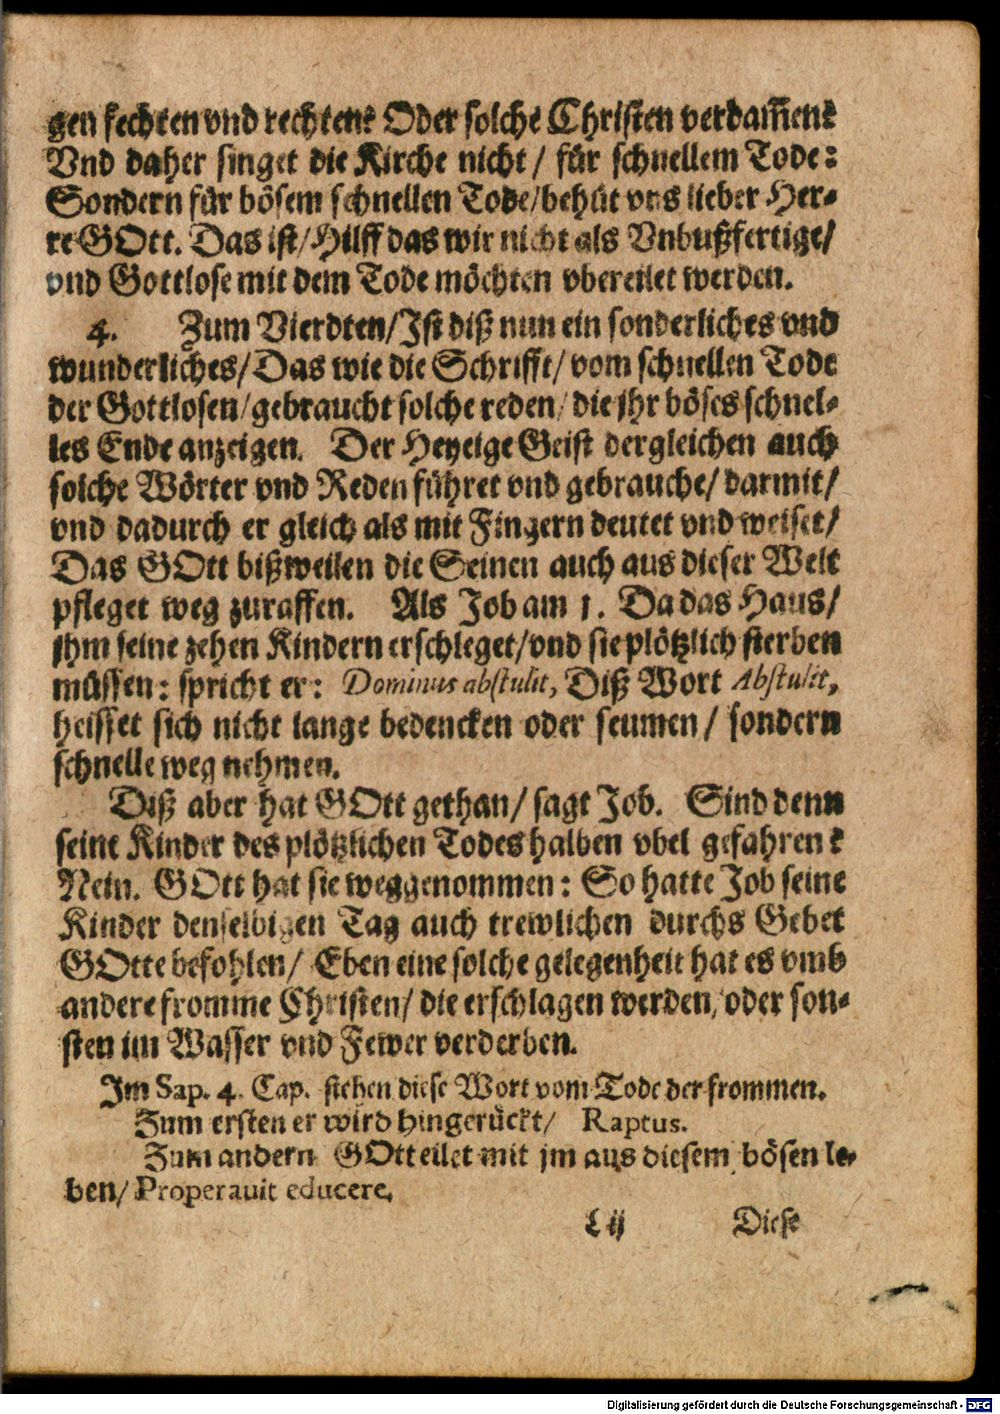 gen fechten vnd rechten? Oder solche Christen verdam̃en?
Vnd daher singet die Kirche nicht / für schnellem Tode:
Sondern für bösem schnellen Tode/behüt vns lieber Her-
re GOtt. Das ist/Hilff das wir nicht als Vnbußfertige/
vnd Gottlose mit dem Tode möchten vbereilet werden.
4. Zum Vierdten/Ist diß nun ein sonderliches vnd
wunderliches/Das wie die Schrifft/ vom schnellen Tode
der Gottlosen/gebraucht solche reden/ die jhr böses schnel-
les Ende anzeigen. Der Heyelge Geist dergleichen auch
solche Wörter vnd Reden führet vnd gebrauche/ darmit/
vnd dadurch er gleich als mit Fingern deutet vnd weiset/
Das GOtt bißweilen die Seinen auch aus dieser Welt
pfleget weg zuraffen. Als Job am 1. Da das Haus/
jhm seine zehen Kindern erschleget/vnd sie plötzlich sterben
müssen: spricht er: Dominus abstulit, Diß Wort Abstulit,
heisset sich nicht lange bedencken oder seumen/ sondern
schnelle weg nehmen.
Diß aber hat GOtt gethan/ sagt Job. Sind denn
seine Kinder des plötzlichen Todes halben vbel gefahren?
Nein. GOtt hat sie weggenommen: So hatte Job seine
Kinder denselbigen Tag auch trewlichen durchs Gebet
GOtte befohlen/ Eben eine solche gelegenheit hat es vmb
andere fromme Christen/ die erschlagen werden/ oder son-
sten im Wasser vnd Fewer verderben.
Im Sap. 4. Cap. stehen diese Wort vom Tode der frommen.
Zum ersten er wird hingerückt/ Raptus.
Zum andern GOtt eilet mit jm aus diesem bösen le-
ben/ Properavit educere.
L ij Diese
Digitalisierung gefördert durch die Deutsche Forschungsgemeinschaft - DFG